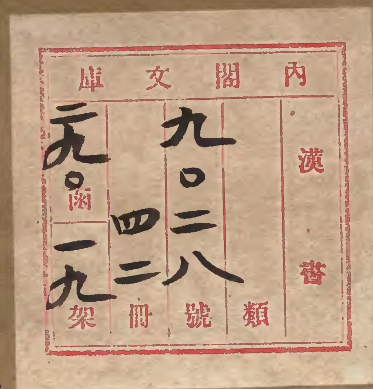 內閣文庫
漢書
類
九〇二八號
四二冊
二九〇函
一九架